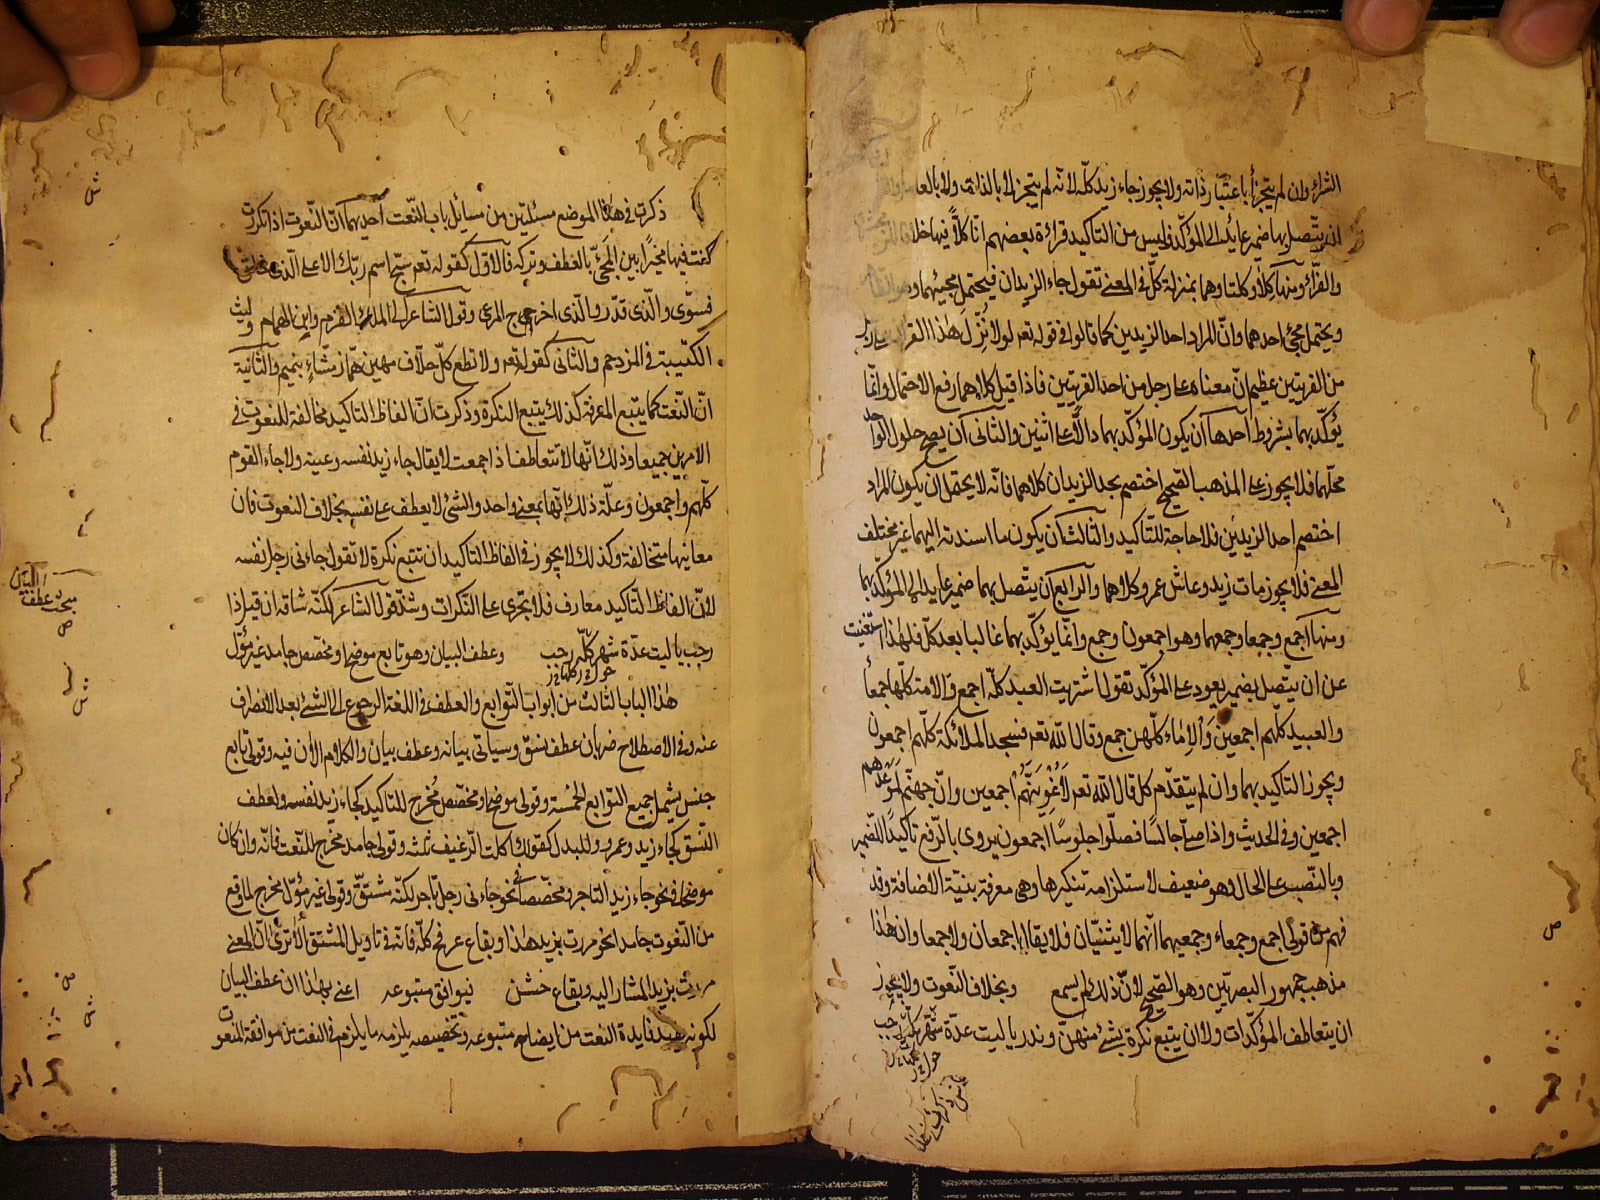 الشراء وان لم يتجزأ باعتبار ذاته ولا يجوز جاء زيد كله لانه لم يتجز لا بالذات ولا بالعامل
ان يتصل بها ضمير عايد الى المؤكد فليس من التاكيد قراءة بعضهم انا كلا فيها خلافا
والفراء ومنها كلا وكلتا وهما بمنزلة كل في المعنى تقول جاء الزيدان فيحتمل مجيئهما
ويحتمل مجئ احدهما وان المراد احد الزيدين كما قالوا في قوله تعه لولا نزل هذا القران على رجل
من القريتين عظيم ان معناه على رجل من احد القريتين فاذا قيل كلاهما رفع الاحتمال وانما
يؤكد بهما بشروط احدها ان يكون المؤكد بهما دالا على اثنين والثانى ان يصح حلول الواحد
محلهما فلا يجوز على المذهب الصحيح اختصم بجد الزيدان كلاهما فانه لا يحتمل ان يكون المراد
اختصم احد الزيدين فلا حاجة للتاكيد والثالث ان يكون ما اسندته اليهما غير مختلف
المعنى فلا يجوز مات زيد وعاش عمرو كلاهما والرابع ان يتصل بهما ضمير عايد الى المؤكد بهما
ومنها اجمع وجمعا وجمعهما وهو اجمعون وجمع وانما يؤكد بهما غالبا بعد كل فلهذا استغنت
عن ان يتصل بضمير يعود على المؤكد تقول اشتريت العبد كله اجمع والامة كلها جمعأ
والعبيد كلهم اجمعين والاماء كلهن جمع وقال الله تعه فسجد الملائكة كلهم اجمعون
ويجوز التاكيد بهما وان لم يتقدم كل قال الله تعه لاغوينهم اجمعين وان جهنم لموعدهم
اجمعين وفي الحديث واذا صلى جالسا فصلوا جلوسا اجمعون يروى بالرفع تاكيدا للضمير
وبالنصب على الحال وهو ضعيف لاستلزامه تنكيرها وهي معرفة بنية الاضافة وقد
فهم من قولى اجمع وجمعاء وجمعيهما انهما لا يثنيان فلا يقال اجمعان ولا جمعا وان هذا
مذهب جمهور البصريين وهو الصحيح لان ذلك لم يسمع وبخلاف النعوت ولا يجوز
ان يتعاطف المؤكدات ولا ان يتبع نكرة بشئ منهن وندر يا ليت عدة شهر كله رجب
حول
ذكرت في هذا الموضع مسئلتين من مسائل باب النعت احديهما ان النعوت اذا تكررت
كنت فيها مخيرا بين المجئ بالعطف وتركه فالاول كقوله تعه سبح اسم ربك الاعلى الذى خلق
فسوى والذى قدر والذى اخرج المرعى وقول الشاعر الى الملك القرم وابن الهمام وليث
الكتيبة في المزدحم والثانى كقوله تعه ولا تطع كل حلاف مهين هماز مشاء بنميم والثانية
ان النعت كما يتبع المعرفة كذلك يتبع النكرة وذكرت ان الفاظ التاكيد مخالفة للنعوت في
الامرين جميعا وذلك انها لا تتعاطف اذا جمعت لا يقال جاء زيد نفسه وعينه ولا جاء القوم
كلهم واجمعون وعلة ذلك انها بمعنى واحد والشئ لا يعطف على نفسه بخلاف النعوت فان
معانيها متخالفة وكذلك لا يجوز في الفاظ التاكيد ان تتبع نكرة لا تقول جاءنى رجل نفسه
لان الفاظ التاكيد معارف فلا يجرى على النكرات وشذ قول الشاعر لكنه شاقه ان قيل ذا
رجب يا ليت عدة شهر كله رجب وعطف البيان وهو تابع موضح او مخصص جامد غير مؤل
حول
هذا الباب الثالث من ابواب التوابع والعطف في اللغة الرجوع الى الشئ بعد الانصراف
عنه وفي الاصطلاح ضربان عطف نسق وسياتى بيانه وعطف بيان والكلام الان فيه وقولى تابع
جنس يشمل جميع التوابع الخمسة وقولى موضح او مخصص مخرج للتاكيد كجاء زيد نفسه ولعطف
النسق كجاء زيد وعمرو وللبدل كقولك اكلت الرغيف ثلثه وقولى جامد مخرج للنعت فانه وان كان
موضحا في نحو جاء زيد التاجر ومخصصا في نحو جاءنى رجل تاجر لكنه مشتق وقولى غير مؤل مخرج لما وقع
من النعوت جامدا نحو مررت بزيد هذا وبقاع عرفج كله فانه في تاويل المشتق الا ترى ان المعنى
مررت بزيد المشار اليه وبقاع خشن فيوافق متبوعه اعنى بهذا ان عطف البيان
لكونه يفيد فايدة النعت من ايضاح متبوعه وتخصيصه يلزمه ما يلزم في النعت من موافقة المنعوت
مبحث عطف البيان